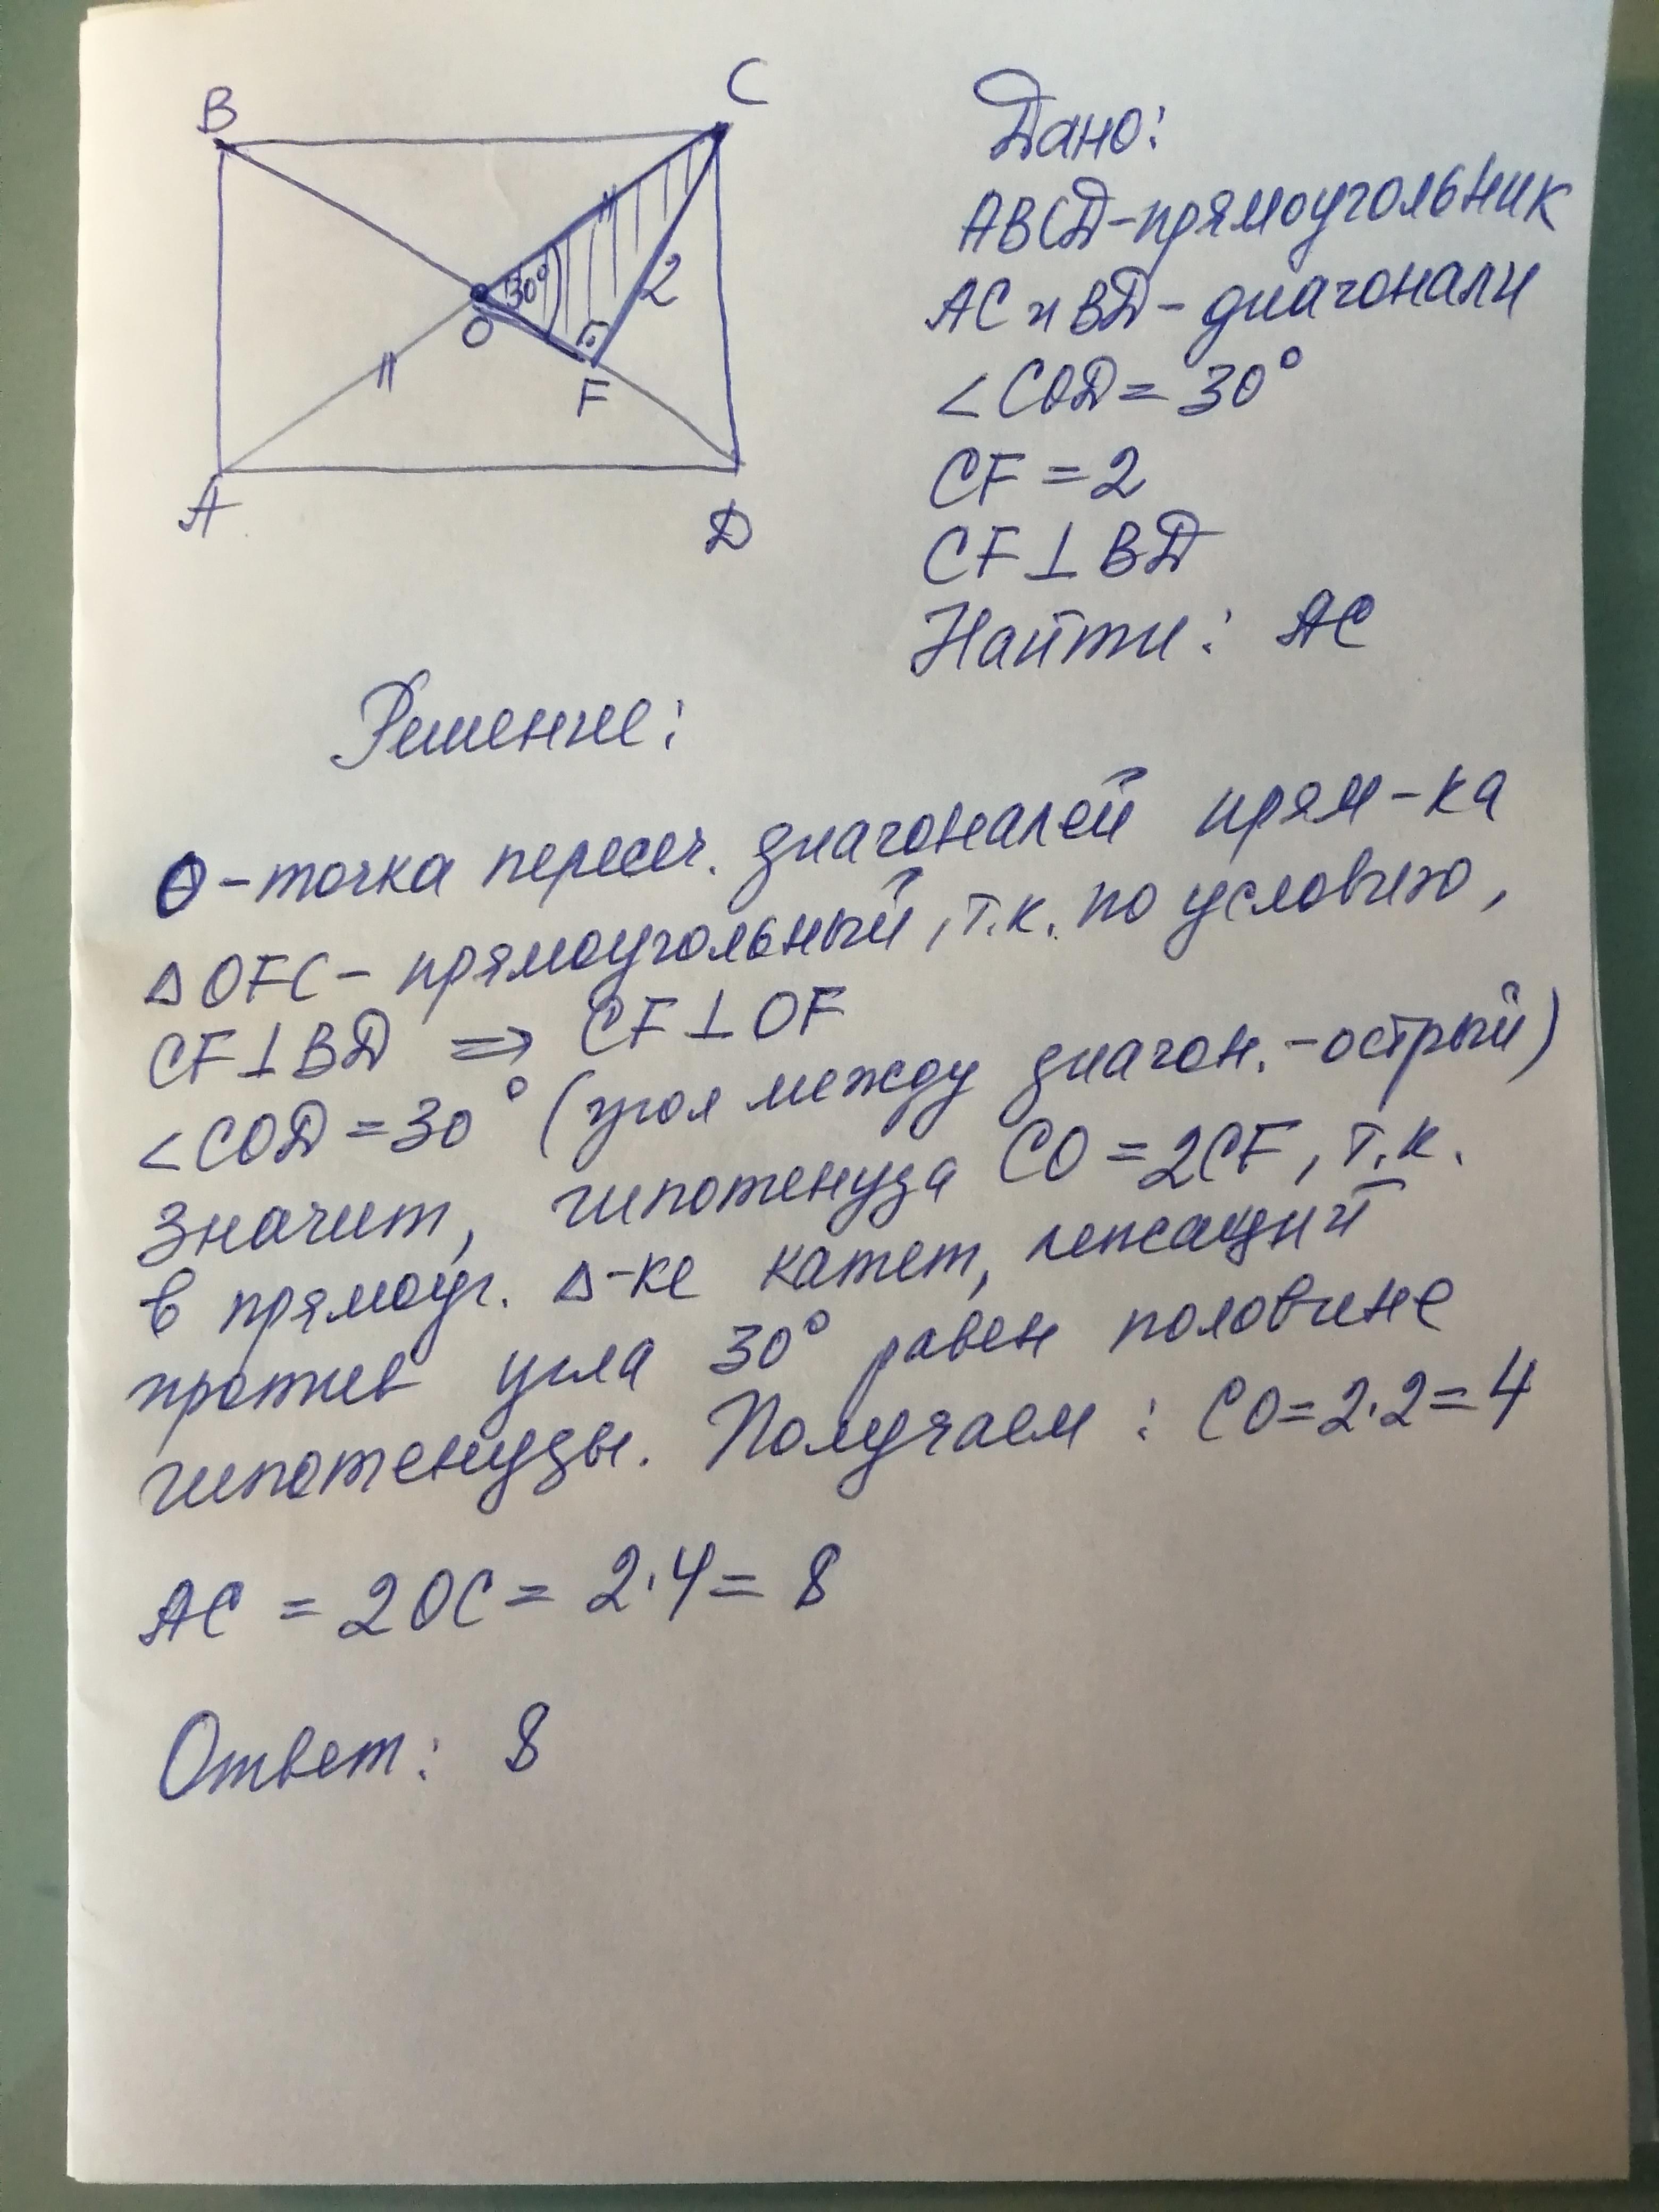 B
C
30°
2
O
F
A
D
Дано:
ABCD-прямоугольник
AC и BD - диагонали
∠COD = 30°
CF = 2
CF⊥BD
Найти: AC
Решение:
O - точка пересеч. диагоналей прям-ка
△OFC - прямоугольный, т.к. по условию,
CF⊥BD ⇒ CF⊥OF
∠COD = 30° (угол между диагон. - острый)
Значит, гипотенуза CO = 2CF, т.к.
в прямоуг. △-ке катет, лежащий
против угла 30° равен половине
гипотенузы. Получаем: CO = 2·2 = 4
AC = 2OC = 2·4 = 8
Ответ: 8